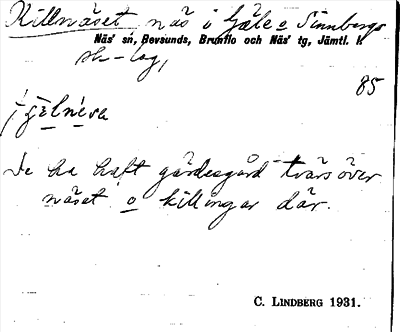 Killnäset näs i Gäle o Sinnbergs
Näs' sn, Revsunds, Brunflo och Näs' tg, Jämtl. l.
sk-lag,
85
De ha haft gärdesgård tvärs över
näset o killingar där.
C. LINDBERG 1931.